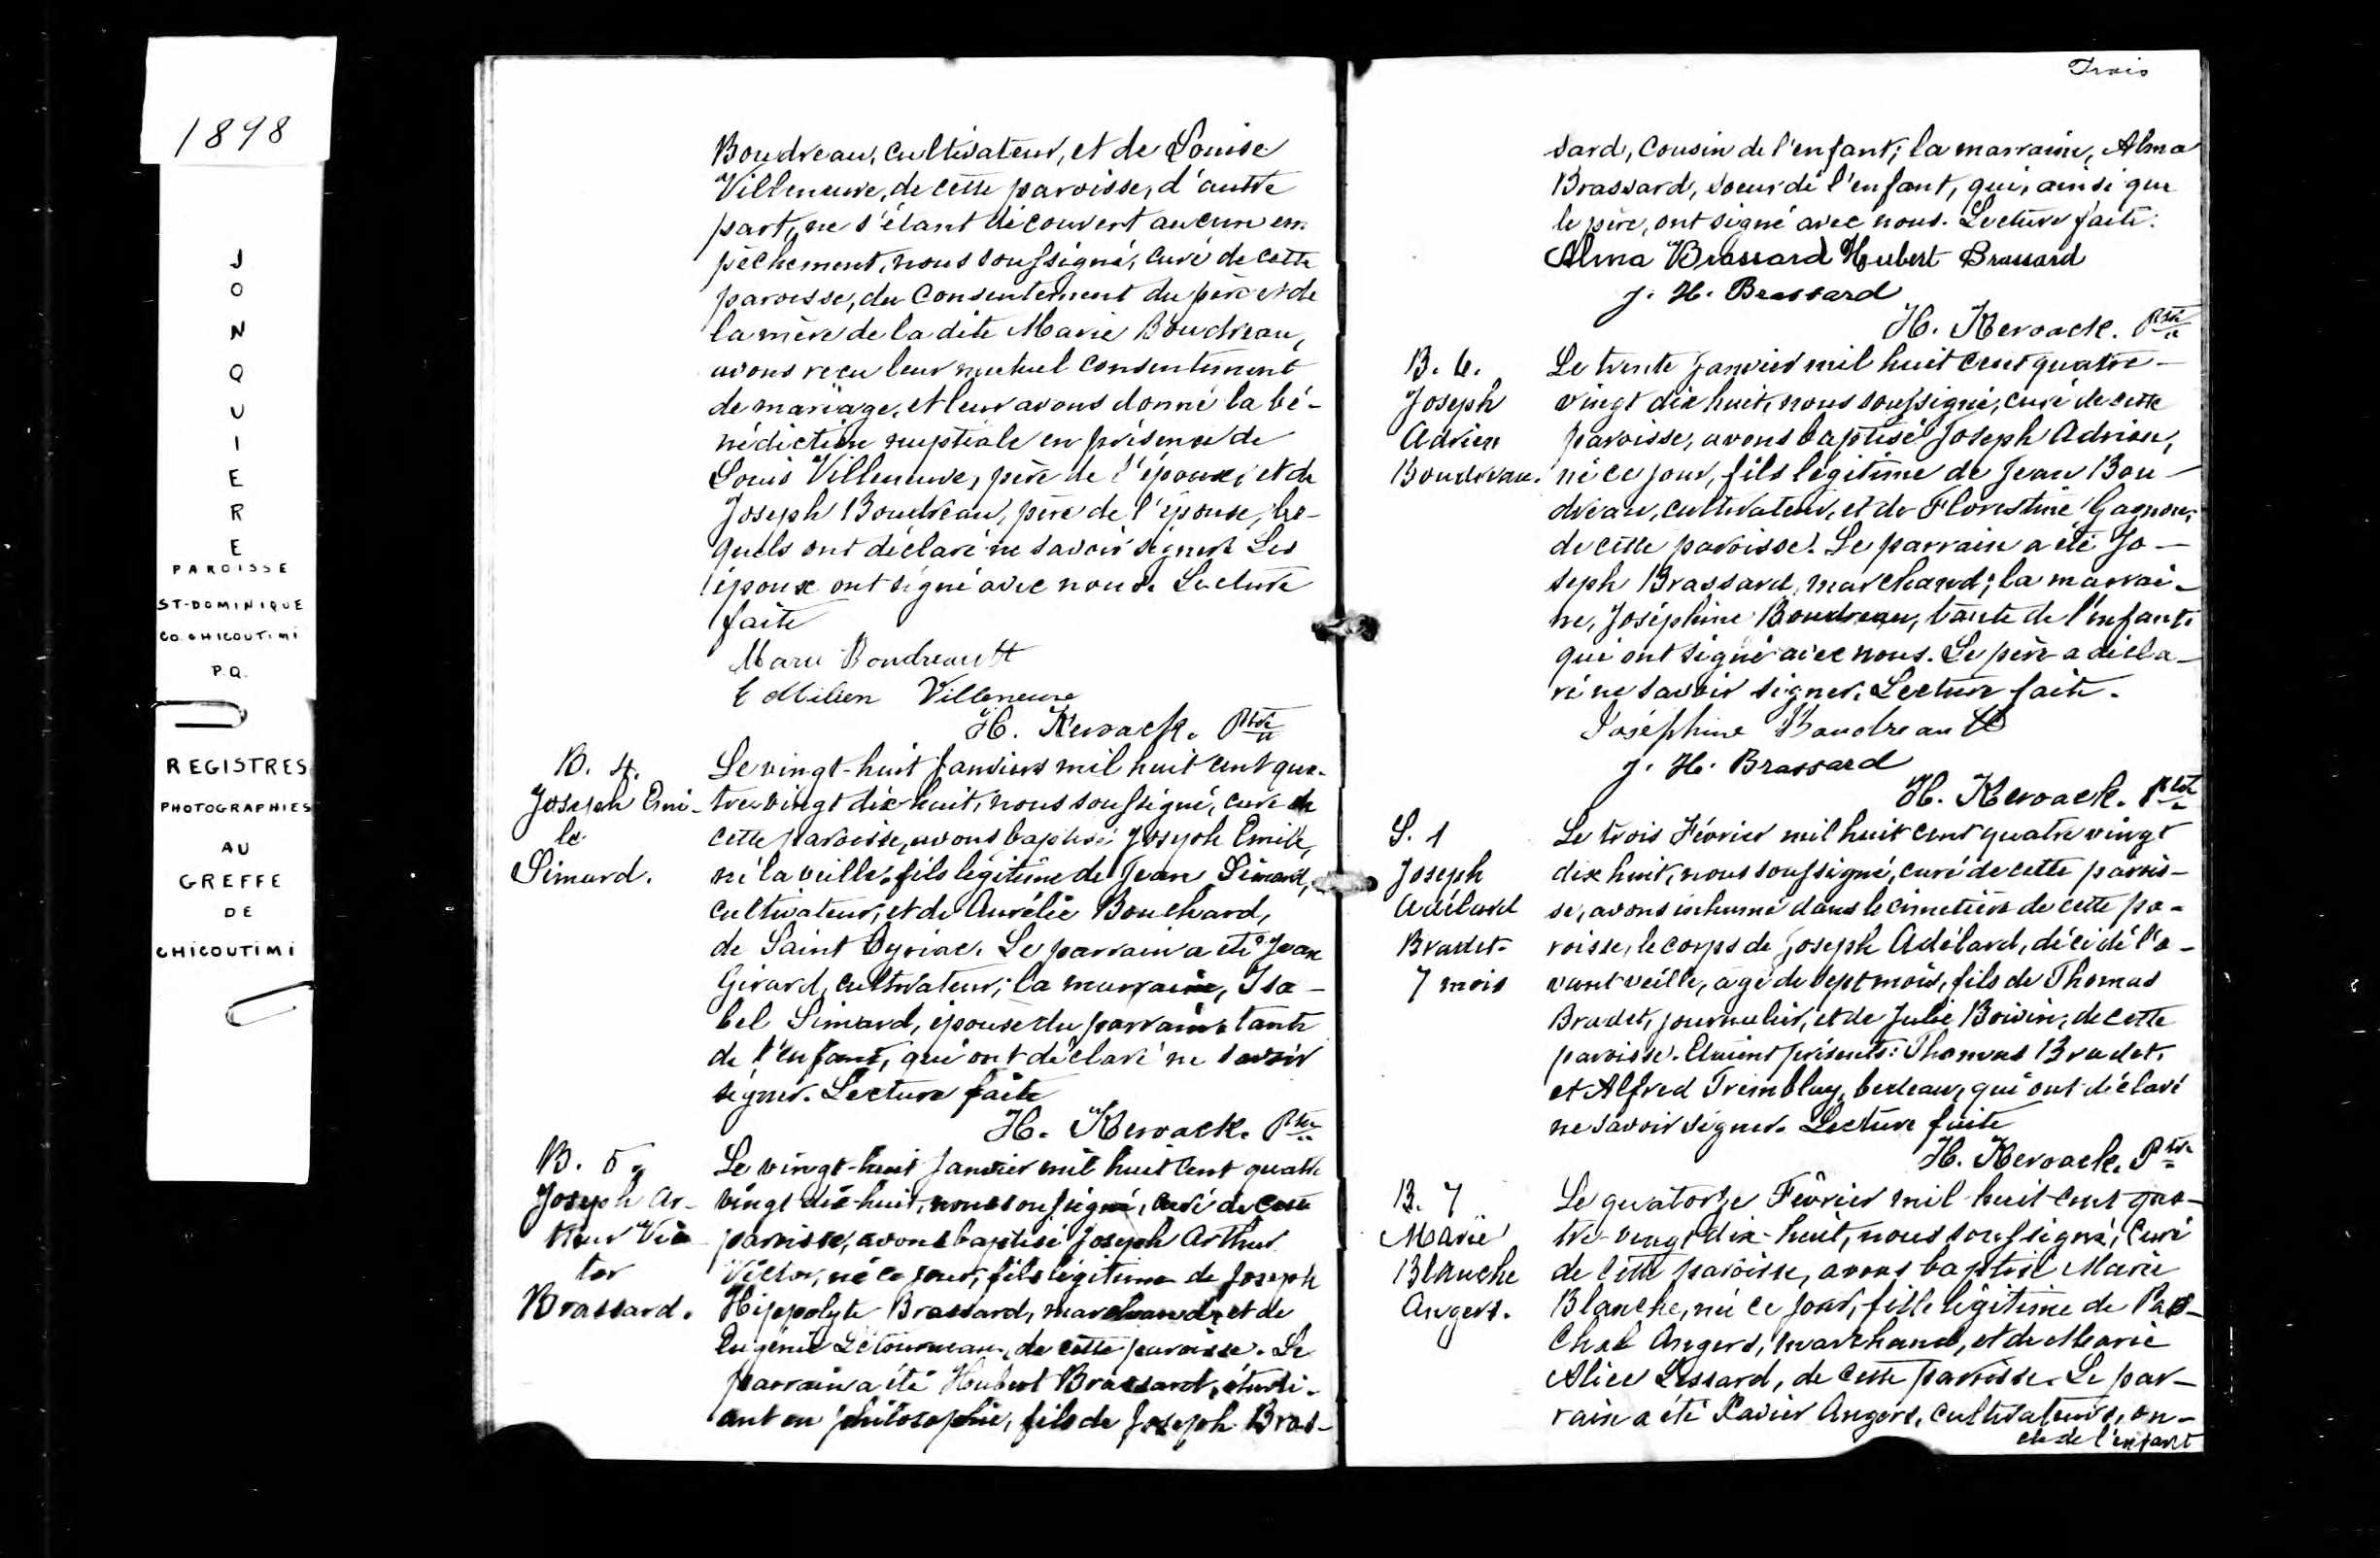 1898
JONQUIERE
PAROISSE
ST-DOMINIQUE
CO. CHICOUTIMI
P.Q.
REGISTRES
PHOTOGRAPHIES
AU
GREFFE
DE
CHICOUTIMI
Boudreau, cultivateur, et de Louise
Villeneuve, de cette paroisse, d'autre
part, ne s'étant découvert aucun em
pêchement, nous soussigné, curé de cette
paroisse, du consentement du père et de
la mère de la dite Marie Boudreau,
avons reçu leur mutuel consentement
de mariage, et leur avons donné la bé-
nédiction nuptiale en présence de
Louis Villeneuve, père de l'époux, et de
Joseph Boudreau, père de l'épouse, les-
quels ont déclaré ne savoir signer. Les
époux ont signé avec nous. Lecture
faite
Marie Boudreault
Villeneuve
H. Kerouack. Ptre
B. 4.
Joseph Emi-
le
Simard.
Le vingt-huit Janvier mil huit cent qua-
tre vingt dix huit, nous soussigné, curé de
cette paroisse, avons baptisé Joseph Emile,
né la veille, fils légitime de Jean Simard,
cultivateur, et de Aurélie Bouchard,
de Saint Cyriac. Le parrain a été Jean
Girard, cultivateur; la marraine, Isa-
bel Simard, épouse du parrain, tante
de l'enfant, qui ont déclaré ne savoir
signer. Lecture faite
H. Kerouack. Ptre
B. 5.
Joseph Ar-
thur Vic
tor
Brassard.
Le vingt-huit Janvier mil huit cent quatre
vingt dix-huit, nous soussigné, curé de cette
paroisse, avons baptisé Joseph Arthur
Victor, né ce jour, fils légitime de Joseph
Hippolyte Brassard, marchand, et de
Eugénie Létourneau, de cette paroisse. Le
parrain a été Hubert Brassard, étudi-
ant en philosophie, fils de Joseph Bras-
Trois
sard, cousin de l'enfant; la marraine, Alma
Brassard, soeur de l'enfant, qui, ainsi que
le père, ont signé avec nous. Lecture faite.
Alma Brassard Hubert Brassard
J. H. Brassard
H. Kerouack. Ptre
B. 6.
Joseph
Adrien
Boudreau.
Le trente Janvier mil huit cent quatre-
vingt dix huit, nous soussigné, curé de cette
paroisse, avons baptisé Joseph Adrien,
né ce jour, fils légitime de Jean Bou-
dreau, cultivateur, et de Florestine Gagnon,
de cette paroisse. Le parrain a été Jo-
seph Brassard, marchand; la marrai-
ne, Joséphine Boudreau, tante de l'enfant,
qui ont signé avec nous. Le père a décla-
ré ne savoir signer. Lecture faite.
Joséphine Boudreault
J. H. Brassard
H. Kerouack. Ptre
S. 1
Joseph
Adélard
Bradet.
7 mois
Le trois Février mil huit cent quatre vingt
dix huit, nous soussigné, curé de cette parois-
se, avons inhumé dans le cimetière de cette pa-
roisse, le corps de Joseph Adélard, décédé l'a-
vant veille, agé de sept mois, fils de Thomas
Bradet, journalier, et de Julie Boivin, de cette
paroisse. Etaient présents: Thomas Bradet
et Alfred Tremblay, bedeau, qui ont déclaré
ne savoir signer. Lecture faite
H. Kerouack. Ptre
B. 7
Marie
Blanche
Angers.
Le quatorze Février mil huit cent qua-
tre-vingt dix-huit, nous soussigné, curé
de cette paroisse, avons baptisé Marie
Blanche, née ce jour, fille légitime de Pas-
chal Angers, marchand, et de Marie
Alice Lessard, de cette paroisse. Le par-
rain a été Xavier Angers, cultivateur, on-
cle de l'enfant